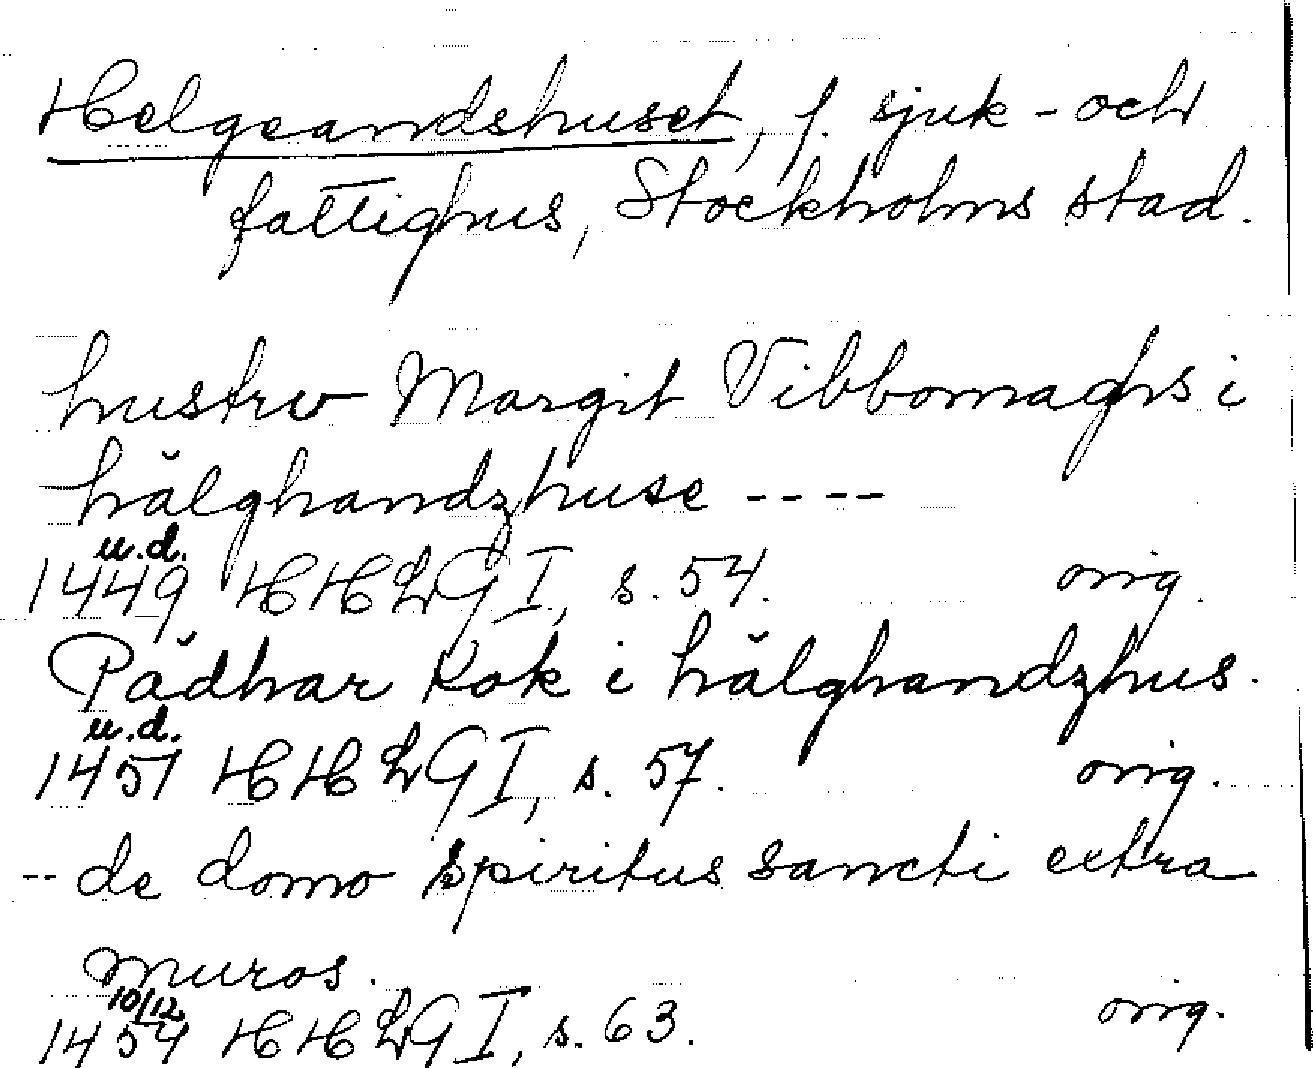 Helgeandshuset, f. sjuk- och
fattighus, Stockholms stad.
hustrv Margit Vibbomaghs i
hălghandzhuse ----
u.d.
1449 HHLG I, s. 54. orig.
Pădhar kok i hălghandzhus.
u.d.
1451 HHLG I, s. 57. orig.
-- de domo spiritus sancti extra
muros.
10/12
1454 HHLG I, s. 63. orig.